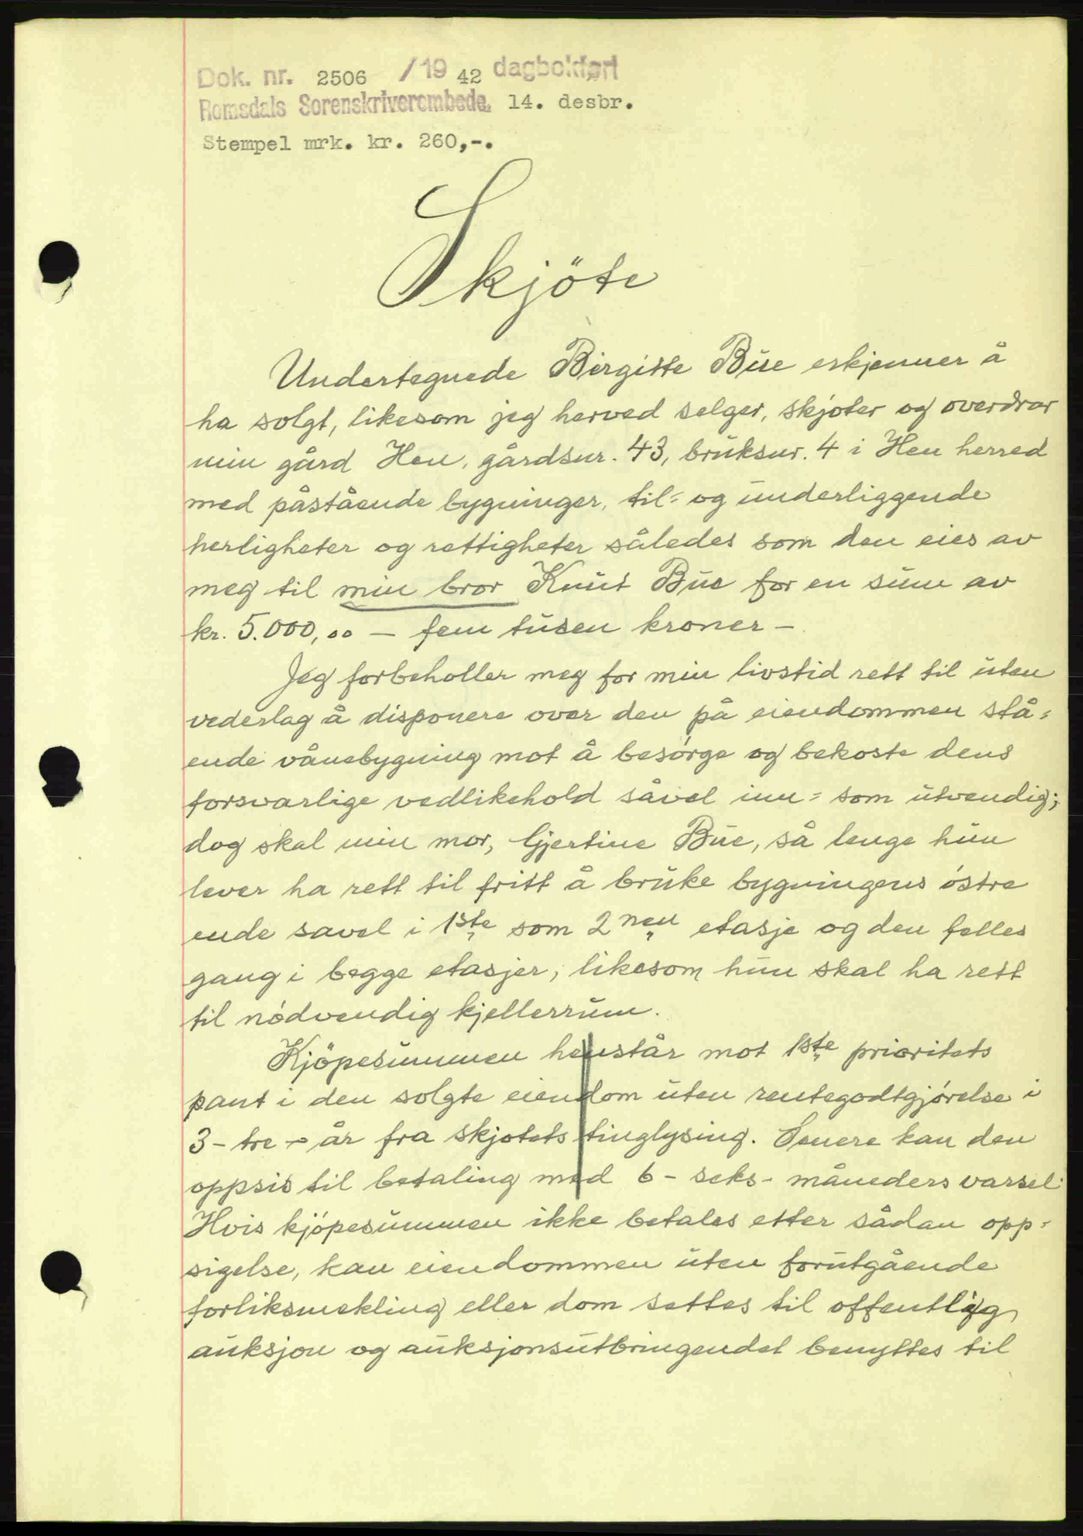 Dok. nr. 2506 /19 42 dagbokført
Romsdals Sorenskriverembede, 14. desbr.
Stempel mrk. kr. 260,-.
Skjöte
Undertegnede Birgitte Bue erkjenner å
ha solgt, likesom jeg herved selger, skjøter og overdrar
min gård Hen, gårdsnr. 43, bruksnr. 4 i Hen herred
med påstående bygninger, til- og underliggende
herligheter og rettigheter således som den eies av
meg til min bror Knut Bue for en sum av
kr. 5.000,00 — fem tusen kroner —
Jeg forbeholler meg for min livstid rett til uten
vederlag å disponere over den på eiendommen stå=
ende vånebygning mot å besørge og bekoste dens
forsvarlige vedlikehold såvel inn= som utvendig;
dog skal min mor, Gjertine Bue, så lenge hun
lever ha rett til fritt å bruke bygningens østre
ende savel i 1ste som 2nen etasje og den felles
gang i begge etasjer, likesom hun skal ha rett
til nødvendig kjellerrum.
Kjöpesummen henstår mot 1ste prioritets
pant i den solgte eiendom uten rentegodtgjørelse i
3 - tre - år fra skjøtets tinglysing. Senere kan den
oppsis til betaling med 6 - seks - måneders varsel.
Hvis kjøpesummen ikke betales etter sådan opp=
sigelse, kan eiendommen uten forutgående
forliksmekling eller dom settes til offentlig
auksjon og auksjonsutbringendet benyttes til